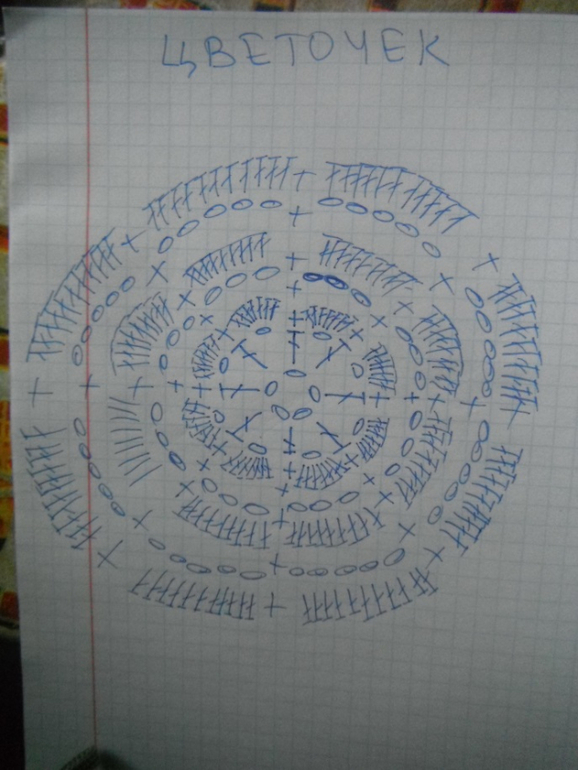 ЦВЕТОЧЕК